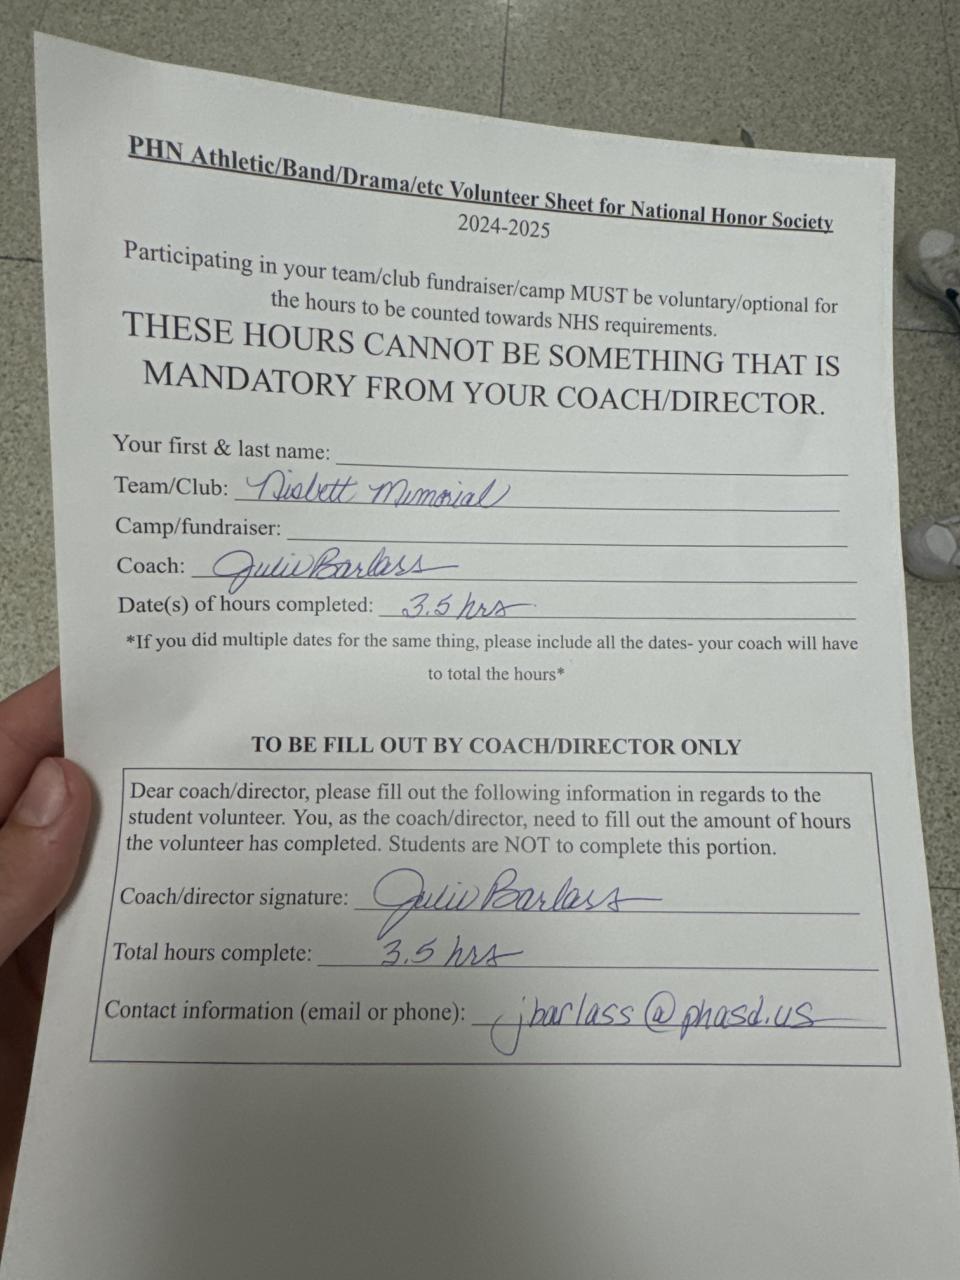 PHN Athletic/Band/Drama/etc Volunteer Sheet for National Honor Society
2024-2025
Participating in your team/club fundraiser/camp MUST be voluntary/optional for
the hours to be counted towards NHS requirements.
THESE HOURS CANNOT BE SOMETHING THAT IS
MANDATORY FROM YOUR COACH/DIRECTOR.
Your first & last name:
Team/Club: Nisbett Memorial
Camp/fundraiser:
Coach: Julie Barlass
Date(s) of hours completed: 3.5 hrs
*If you did multiple dates for the same thing, please include all the dates- your coach will have
to total the hours*
TO BE FILL OUT BY COACH/DIRECTOR ONLY
Dear coach/director, please fill out the following information in regards to the
student volunteer. You, as the coach/director, need to fill out the amount of hours
the volunteer has completed. Students are NOT to complete this portion.
Coach/director signature: Julie Barlass
Total hours complete: 3.5 hrs
Contact information (email or phone): jbarlass@phasd.us